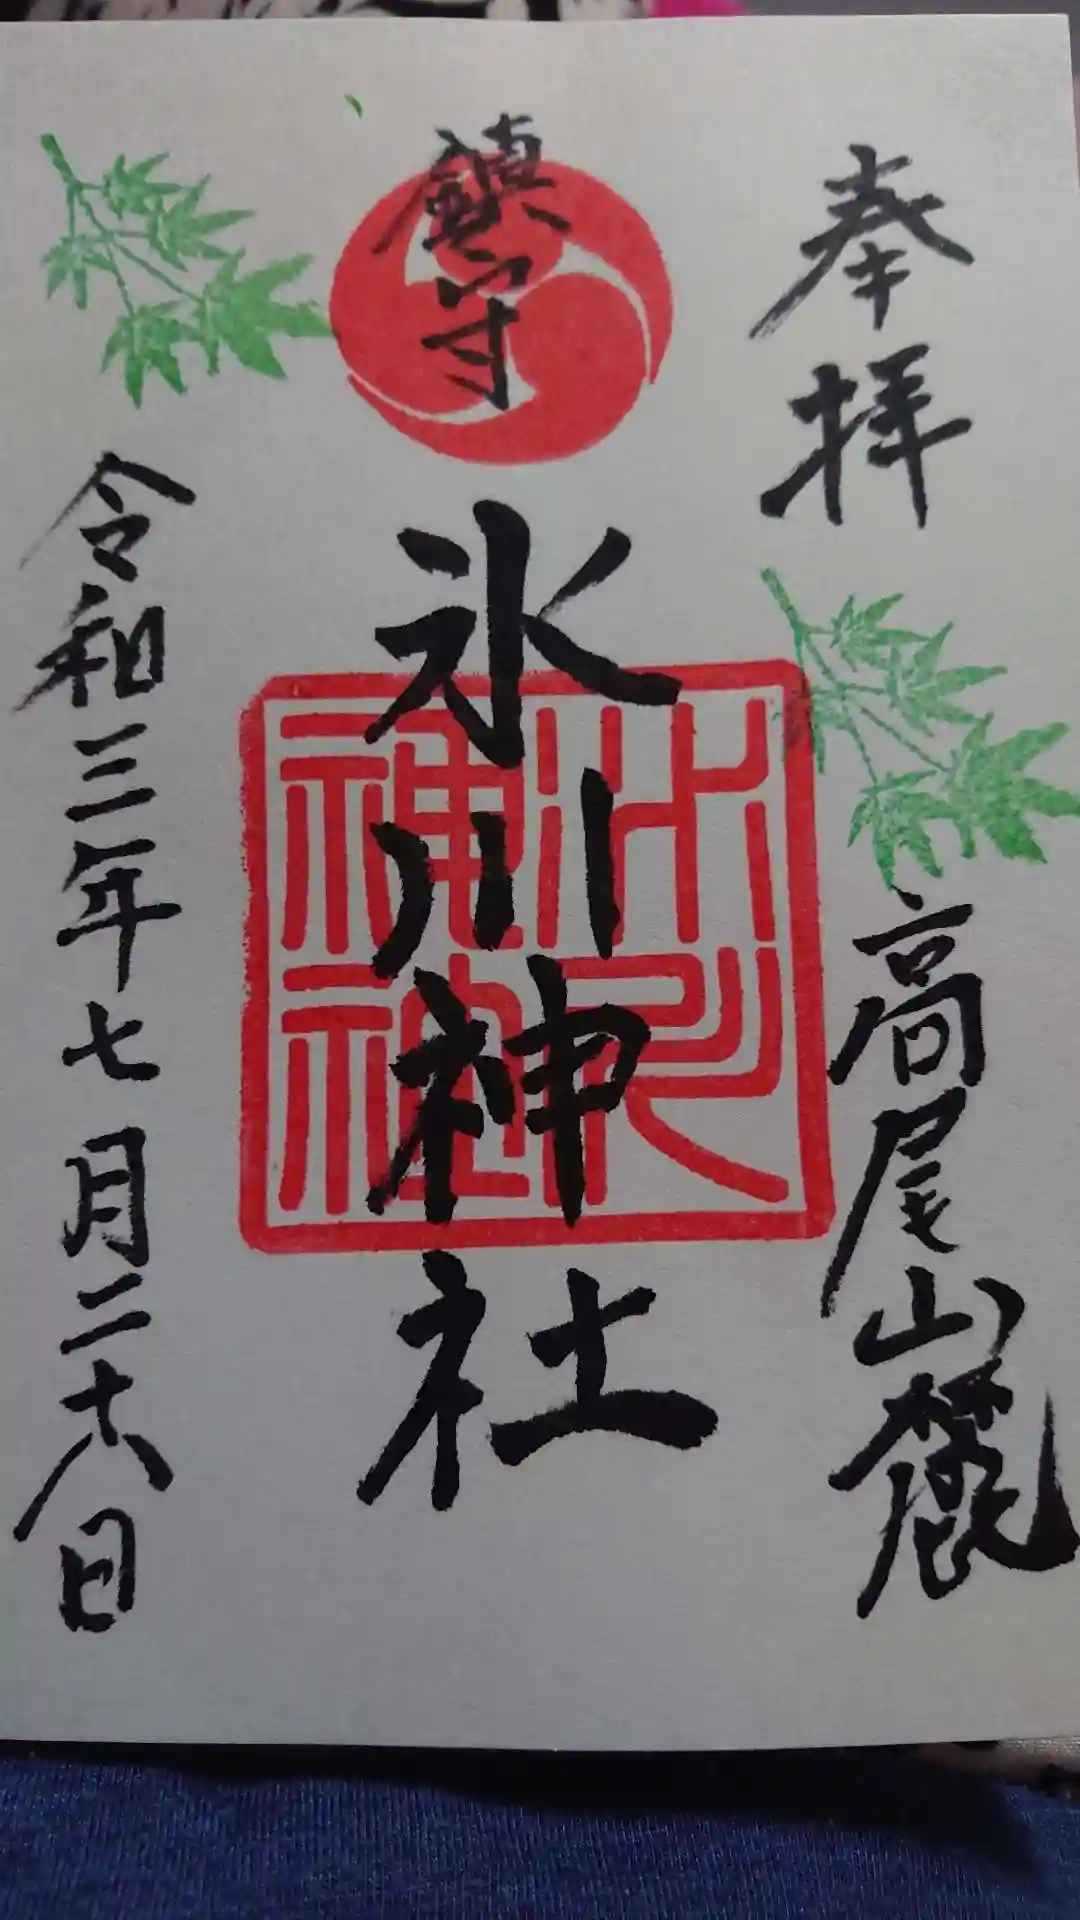 奉拝
高尾山麓
鎮守
氷川神社
令和三年七月二十八日